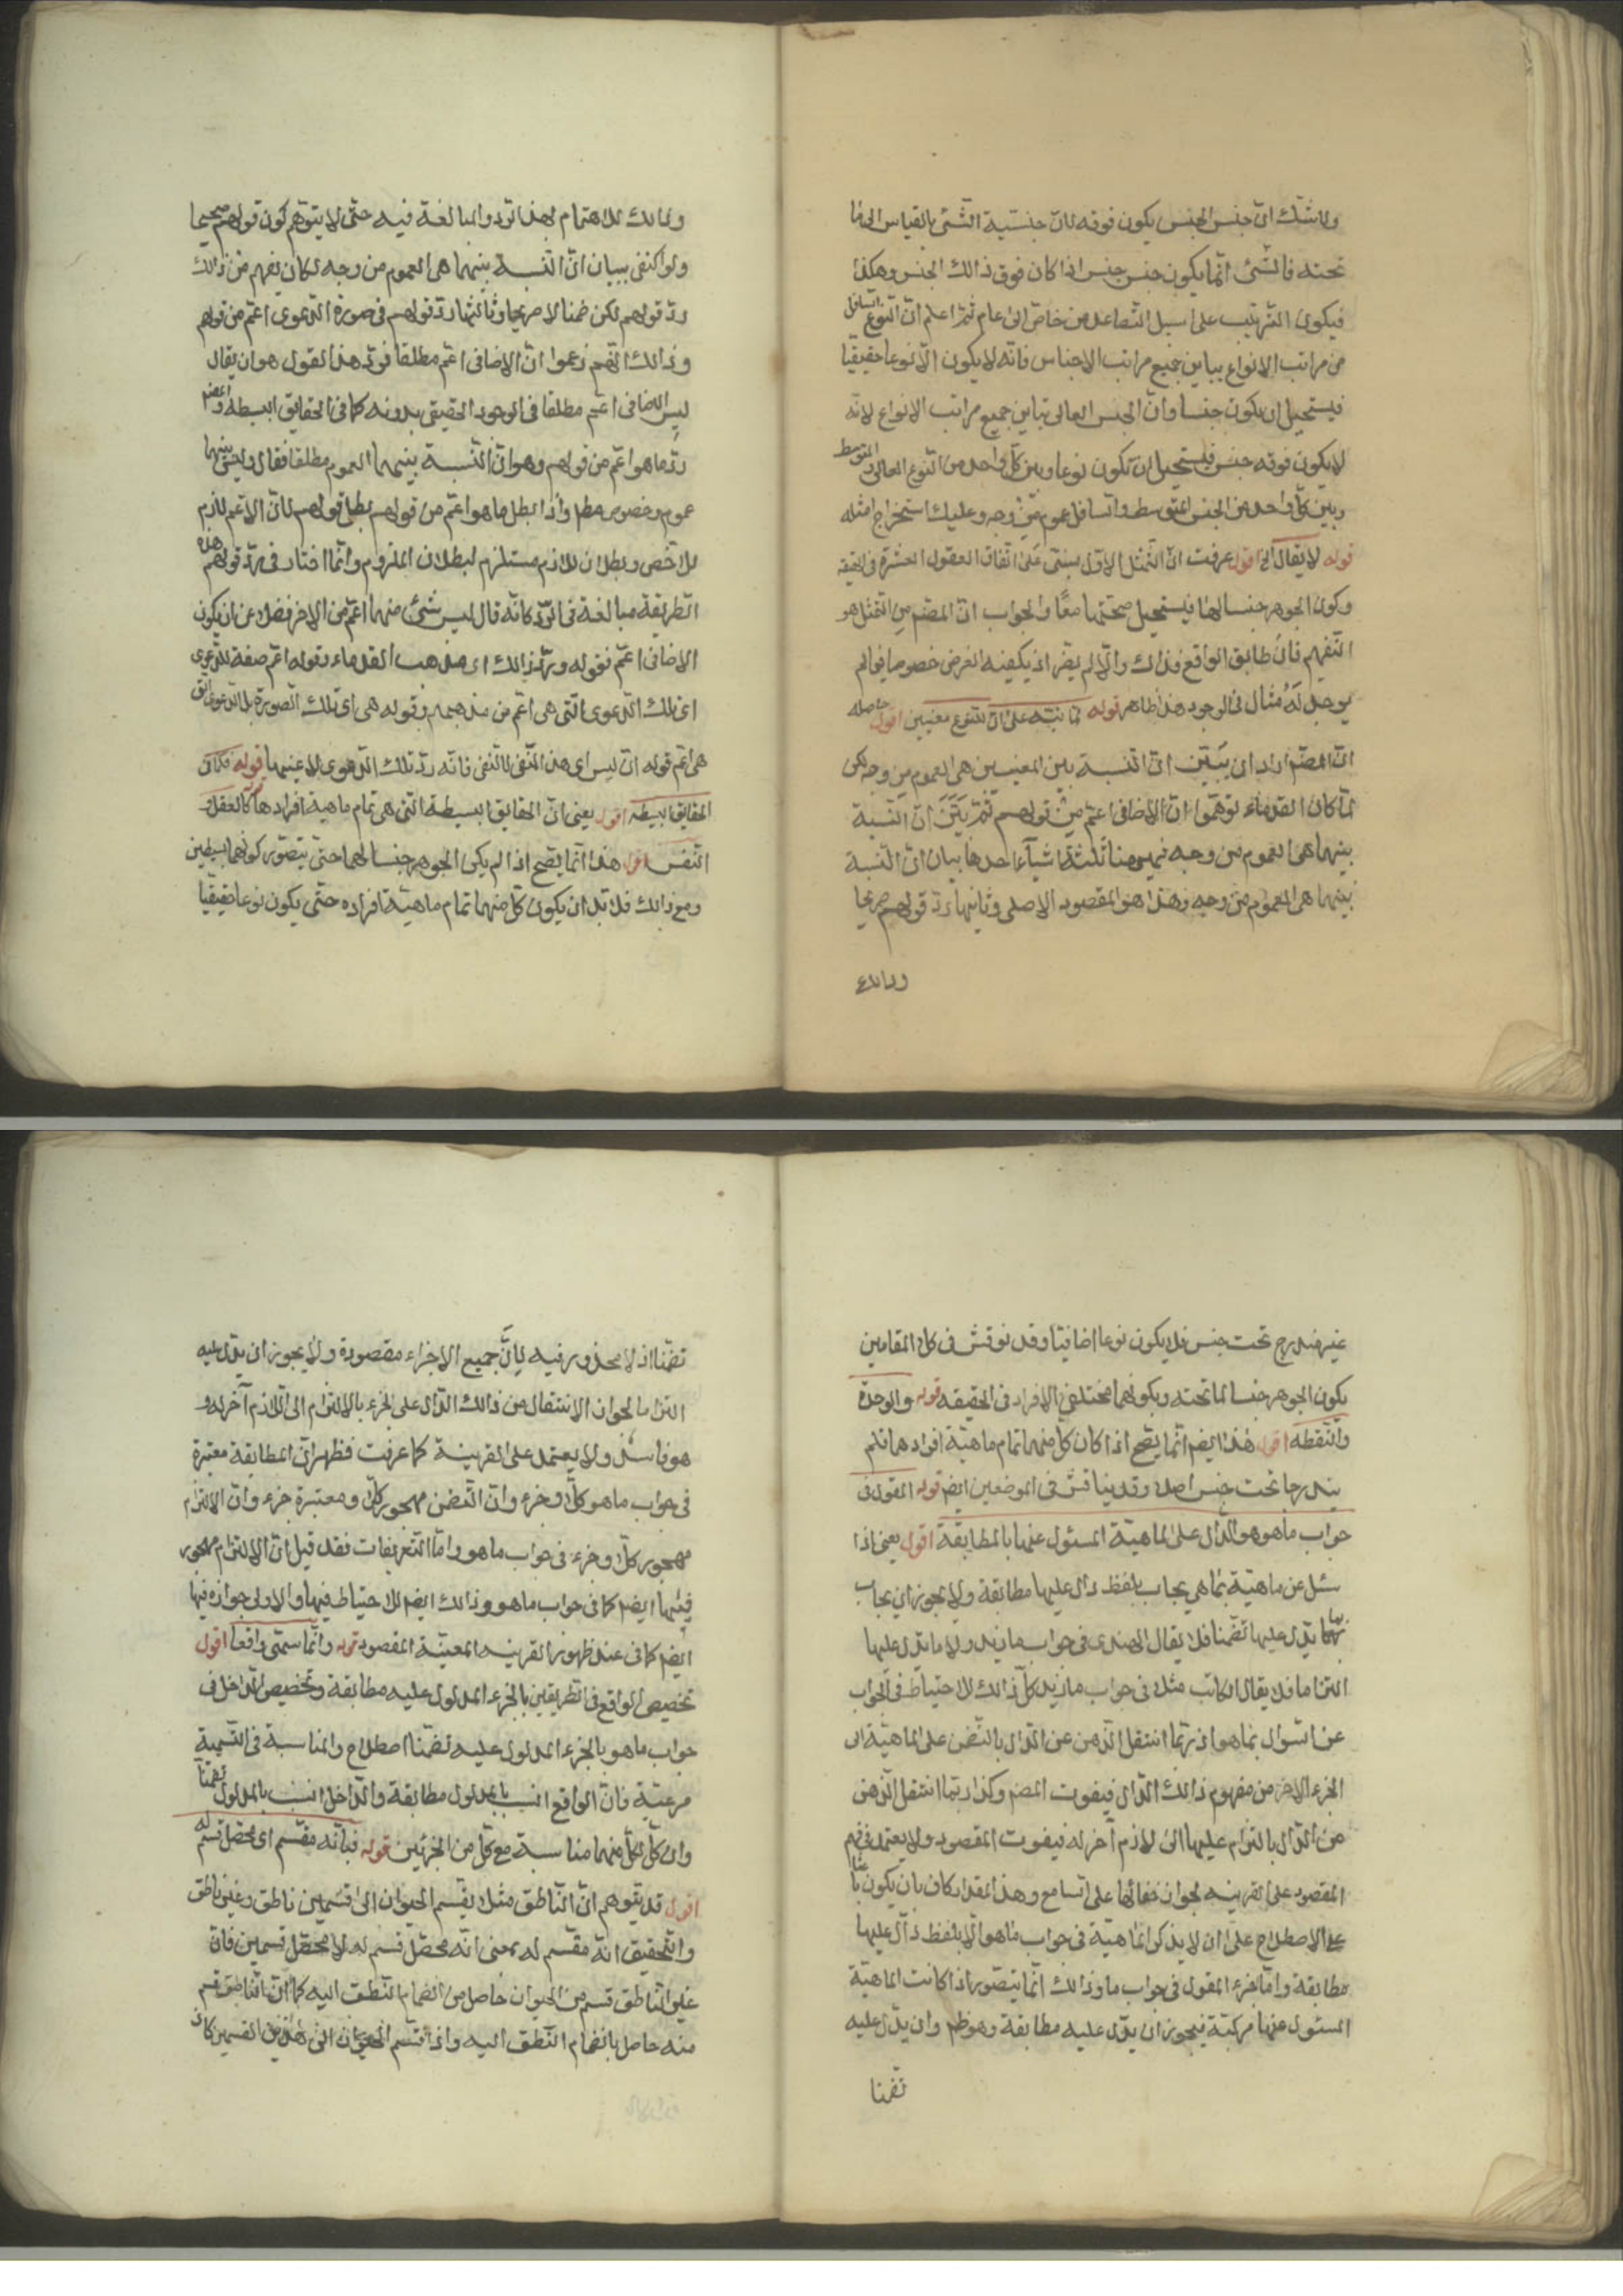 ولا شك ان جنس الجنس يكون فوقه لان جنسية الشئ بالقياس الى ما
تحته فالشئ انما يكون جنس جنس اذا كان فوق ذالك الجنس وهكذا
فيكون الترتيب على سبيل التصاعد من خاص الى عام ثم اعلم ان النوع السافل
من مراتب الانواع يباين جميع مراتب الاجناس فانه لا يكون الا نوعا حقيقيا
فيستحيل ان يكون جنسا وان الجنس العالى تباين جميع مراتب الانواع لانه
لا يكون فوقه جنس فيستحيل ان تكون نوعا وبين كل واحد من النوع العالى والمتوسط
وبين كل واحد من الجنس المتوسط والسافل عموم من وجه وعليك استخراج امثله
قوله لا يقال الخ اقول عرفت ان التمثل الاول مبنى على اتفاق العقول العشرة فى الحقيقه
وكون الجوهر جنسا لها فيستحيل صحتها معا والجواب ان المقصم من التمثل هو
التفهيم فان طابق الواقع فذاك والا لم يضر اذ يكفيه الغرض خصوصا فيما لم
يوجد له مثال فى الوجود هذا ظاهر قوله لما نبه على ان للنوع معنيين اقول حاصله
ان المصم اراد ان يبين ان النسبة بين المعنيين هى العموم من وجه لكن
لما كان القدماء توهموا ان الاضافى اعم من قولهم ثم بين ان النسبة
بينهما هى العموم من وجه فههنا ثلثة اشياء احدها بيان ان النسبة
بينهما هى العموم من وجه وهذا هو المقصود الاصلى وثانيها رد قولهم صريحا
وذالك
وذالك للاهتمام بهذا الرد والمبالغة فيه حتى لا يتوهم كون قولهم صحيحا
ولو اكتفى ببيان ان النسبة بينهما هى العموم من وجه لكان يفهم من ذالك
رد قولهم لكن ضمنا لا صريحا وثالثها رد قولهم فى صورة الدعوى اعم من قولهم
وذالك انهم زعموا ان الاضافى اعم مطلقا فرد هذا القول هو ان يقال
ليس الاضافى اعم مطلقا فى الوجود الحقيقى بدونه كما فى الحقايق البسيطه واعم
رد ما هو اعم من قولهم وهو ان النسبة بينهما العموم مطلقا فقال وليس بينهما
عموم وخصوص مطم واذا بطل ما هو اعم من قولهم بطل قولهم لان الاعم لازم
للاخص وبطلان للازم مستلزم لبطلان الملزوم وانما اختار فى رد قولهم هذه
الطريقة مبالغة فى الرد كانه قال ليس شئ منهما اعم من الاخر فضلا عن ان يكون
الاضافى اعم فقوله ورد ذالك اى مذهب القدماء وقوله اعم صفة للدعوى
اى تلك الدعوى التى هى اعم من مذهبهم وقوله هى اى تلك الصورة بل الدعوى التى
هى اعم قوله ان ليس اى هذا المنفى لا النفى فانه رد تلك الدعوى لا عينها قوله فكما فى
الحقايق البسيطه اقول يعنى ان الحقايق البسيطة التى هى تمام ماهية افرادها كالعقل و
النفس اقول هذا انما يصح اذا لم يكن الجوهر جنسا لهما حتى يتصور كونهما بسيطين
ومع ذالك فلا بد ان يكون كل منهما تمام ماهية افراده حتى يكون نوعا حقيقيا
غير مندرج تحت جنس فلا يكون نوعا اضافيا وقد نوقش فى كلا المقامين
بكون الجوهر جنسا لما تحته وبكونهما مختلفى الافراد فى الحقيقه قوله والوحدة
والنقطه اقول هذا ايضم انما يصح اذا كان كل منهما تمام ماهية افرادهما فلم
يندرجا تحت جنس اصلا وقد يناقش فى الموضعين ايضم قوله المقول فى
جواب ما هو هو الدال على الماهية المسئول عنها بالمطابقة اقول يعنى اذا
سئل عن ماهية بما هى يجاب بلفظ دال عليها مطابقة ولا يجوز ان يجاب
بما يدل عليها تضمنا فلا يقال الهندى فى جواب ما زيد ولا ما يدل عليها
التزاما فلا يقال الكاتب مثلا فى جواب ما زيد كل ذالك للاحتياط فى الجواب
عن السؤال بما هو اذ ربما انتقل الذهن عن الدال بالتضمن على الماهية الى
الجزء الاخر من مفهوم ذالك الدال فيفوت المقصم وكذا ربما انتقل الذهن
من الدال بالتزام عليها الى لازم آخر له فيفوت المقصود ولا يعتمد فى فهم
المقصود على القرينه لجواز خفائها على السامع وهذا المقدار كاف بان يكون باعثا
على الاصطلاح على ان لا يذكر الماهية فى جواب ما هو الا بلفظ دال عليها
مطابقة واما جزء المقول فى جواب ما وذالك انما يتصور اذا كانت الماهية
المسئول عنها مركبة فيجوز ان يدل عليه مطابقة وهو ظم وان يدل عليه
تضمنا
تضمنا اذ لا محذور فيه لان جميع الاجزاء مقصودة ولا يجوز ان يدل عليه
التزاما لجواز الانتقال من ذالك الدال على الجزء بالالتزام الى اللازم آخر له و
هو فاسد ولا يعتمد على القرينة كما عرفت فظهر ان المطابقة معتبرة
فى جواب ما هو كلا وجزء وان التضمن مهجور كلا ومعتبرة جزء وان الالتزام
مهجور كلا وجزء فى جواب ما هو واما التعريفات فقد قيل ان الالتزام مهجور
فيها ايضم كما فى جواب ما هو وذالك ايضم للاحتياط فيها والاولى جوازه فيها
ايضم كما فى عند ظهور القرينه المعينة المقصود قوله وانما سمى واقعا اقول
تخصيص الواقع فى الطريقين بالجزء المدلول عليه مطابقة وتخصيص الداخل فى
جواب ما هو بالجزء المدلول عليه تضمنا اصطلاح والمناسبة فى التسمية
مرعية فان الواقع انسب بالمدلول مطابقة والداخل انسب بالمدلول تضمنا
وان كان لكل منهما مناسبة مع كل من الجزئين قوله فبانه مقسم اى محصل قسم له
اقول قد يتوهم ان الناطق مثلا يقسم الحيوان الى قسمين ناطق وغير ناطق
والتحقيق انه مقسم له بمعنى انه محصل قسم له لا محصل قسمين فان
غير الناطق قسم من الحيوان حاصل من انضمام النطق اليه كما ان الناطق قسم
منه حاصل بانضمام النطق اليه واذا قسم الحيوان الى هذين القسمين كان